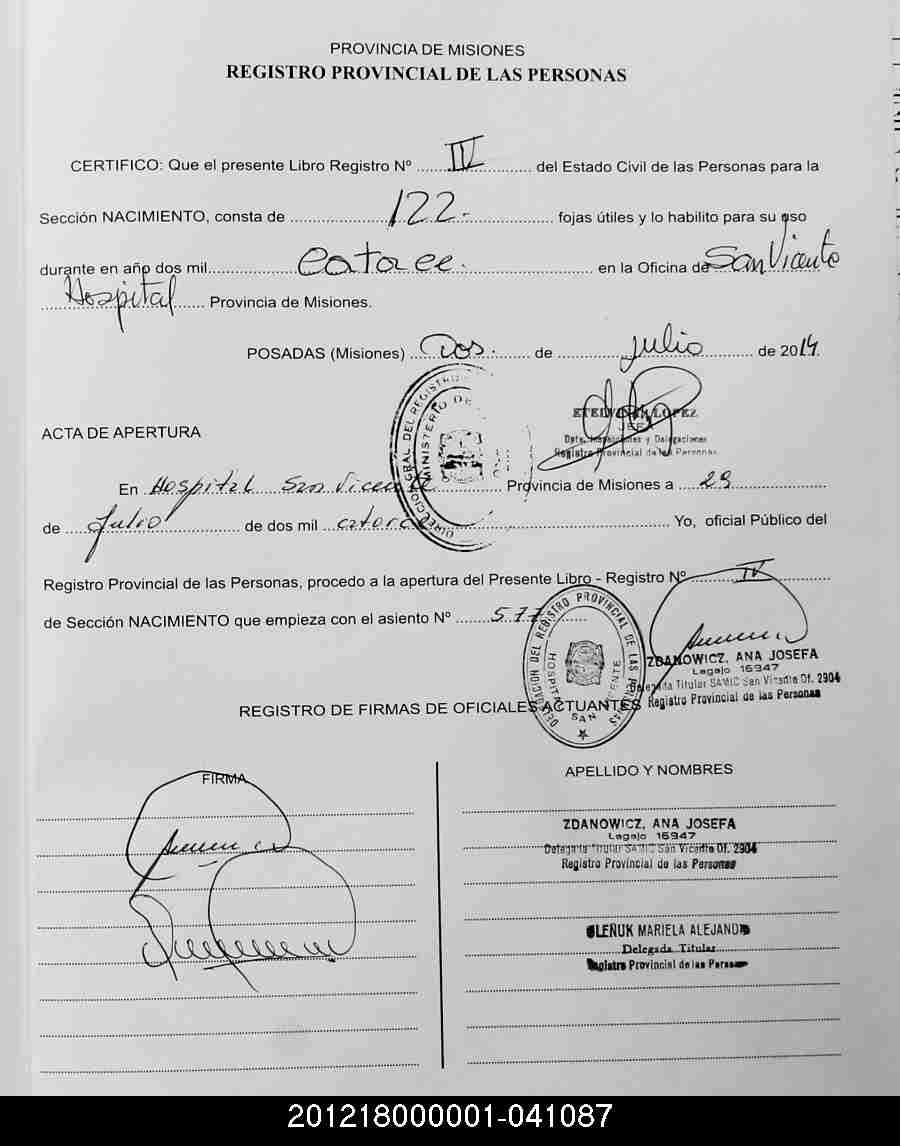 PROVINCIA DE MISIONES
REGISTRO PROVINCIAL DE LAS PERSONAS
CERTIFICO: Que el presente Libro Registro Nº IV del Estado Civil de las Personas para la
Sección NACIMIENTO, consta de 122.- fojas útiles y lo habilito para su uso
durante en año dos mil catorce. en la Oficina de San Vicente
Hospital Provincia de Misiones.
POSADAS (Misiones) Dos. de julio de 2014.
LOPEZ
JEFE
Dpto. Inspecciones y Delegaciones
Registro Provincial de las Personas
ACTA DE APERTURA
En Hospital San Vicente Provincia de Misiones a 29
de Julio de dos mil catorce Yo, oficial Público del
Registro Provincial de las Personas, procedo a la apertura del Presente Libro - Registro Nº IV
de Sección NACIMIENTO que empieza con el asiento Nº 577
DELEGACION DEL REGISTRO PROVINCIAL DE LAS PERSONAS
HOSPITAL SAN VICENTE
ZDANOWICZ, ANA JOSEFA
Legajo 16947
Delegada Titular SAMIC San Vicente Of. 2904
Registro Provincial de las Personas
REGISTRO DE FIRMAS DE OFICIALES ACTUANTES
FIRMA
APELLIDO Y NOMBRES
ZDANOWICZ, ANA JOSEFA
Legajo 16947
Delegada Titular SAMIC San Vicente Of. 2904
Registro Provincial de las Personas
OLEÑUK MARIELA ALEJANDR
Delegada Titular
Registro Provincial de las Personas
201218000001-041087